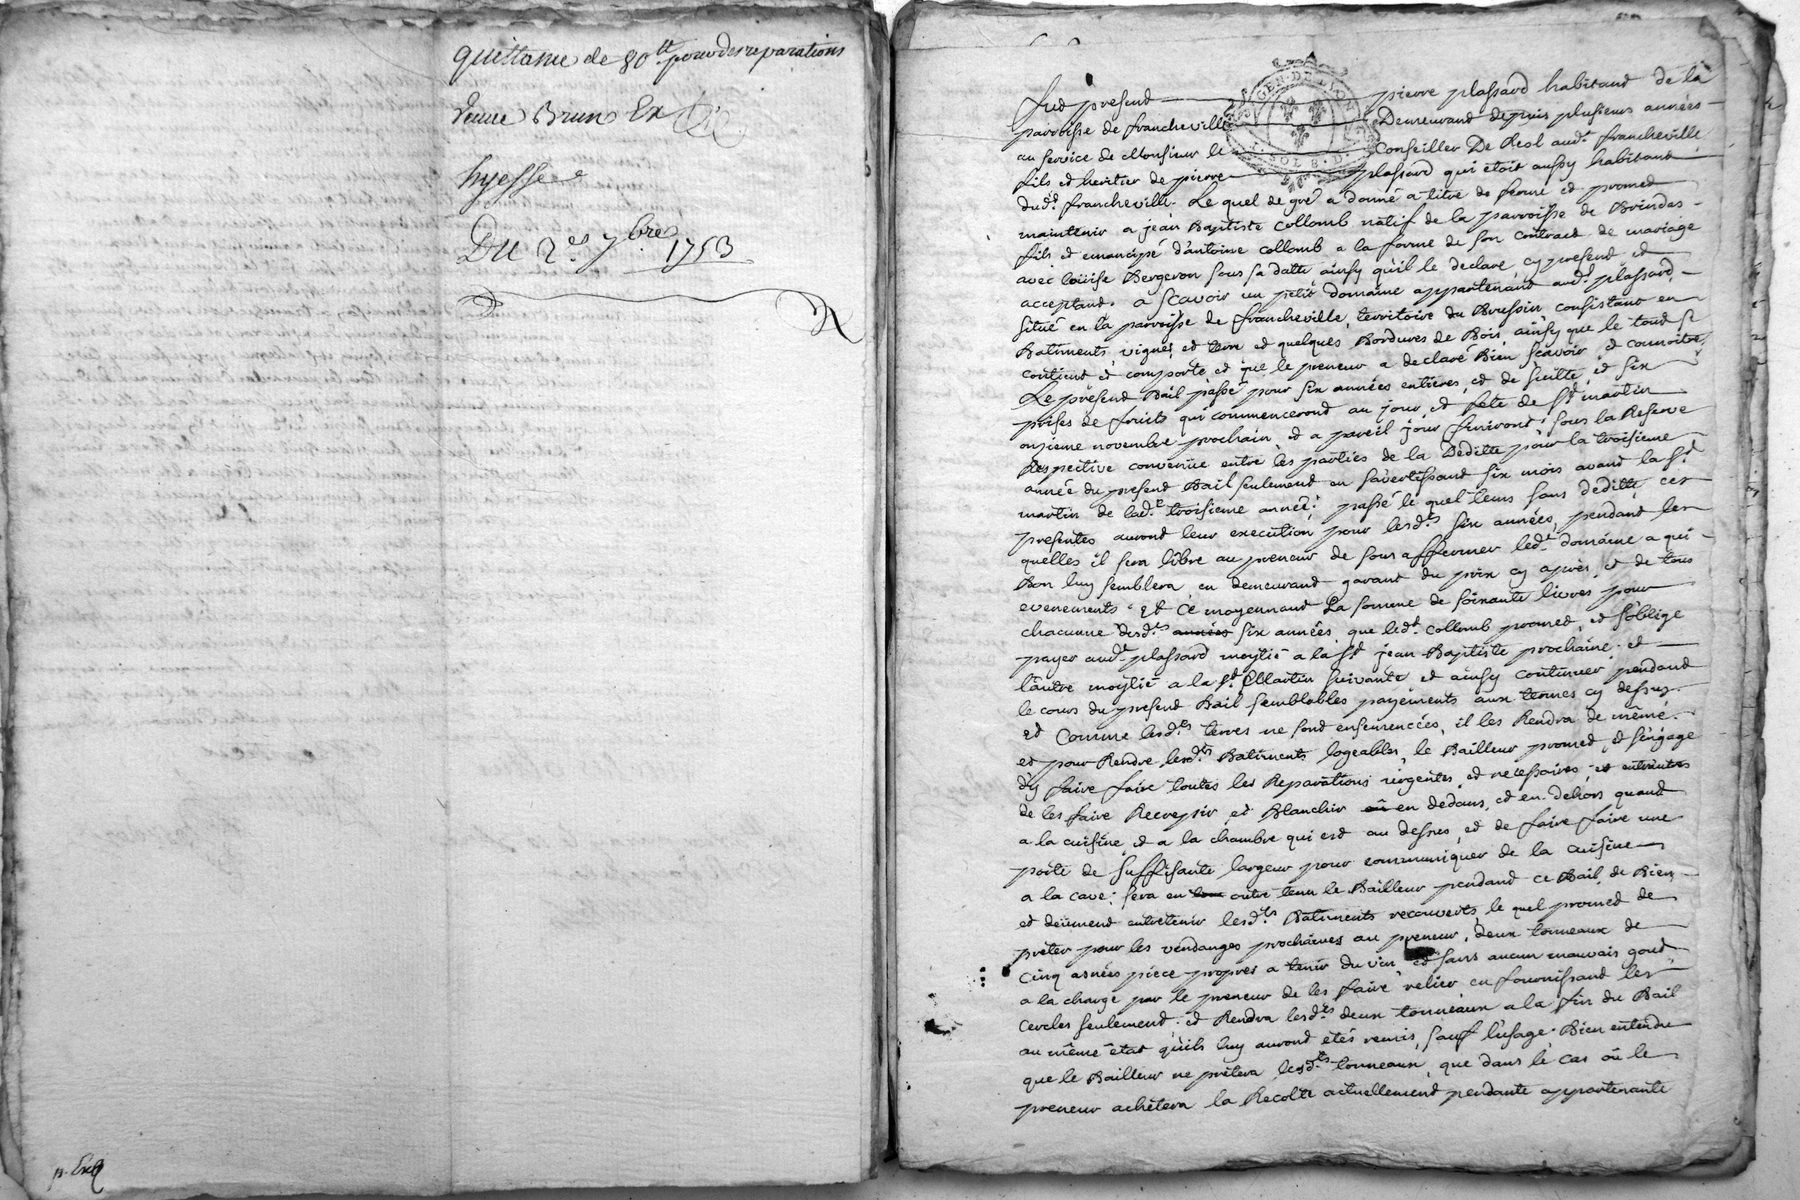 quittance de 80.tt pour des reparations
veuve Brun Ex
hyesse
Du 2.e 7.bre 1753
p. Exp
GEN. DE LION
SOLS. D.
Fut present pierre plassard habitant de la
parroisse de francheville Demeurant depuis plusieurs années
au service de Monsieur le Conseiller De Resl aud.t francheville
fils et heritier de pierre plassard qui étoit aussy habitant
dud.t francheville. Le quel de gré a donné a titre de ferme et promet
maintenir a jean Baptiste Collomb natif de la parroisse de Brindas
fils et emancipé d'antoine Collomb a la forme de son contract de mariage
avec loüise Bergeron sous sa datte ainsy qu'il le declare, cy present et
acceptant. a scavoir un petit domaine appartenant aud.t plassard,
situé en la parroisse de francheville, territoire du Bruissin, consistant en
Batiments, vignes, et terre et quelques Bordures de Bois, ainsy que le tout se
contient et comporte et que le preneur a declaré Bien scavoir, et connoitre,
Le present Bail passé pour six années entieres, et de suitte, et six
prises de fruits qui commenceront au jour, et fête de S.t martin
onzieme novembre prochain, et a pareil jour finiront, sous la Reserve
Respective convenüe entre les parties de la Deditte pour la troisieme
année du present Bail seulement en s'avertissant six mois avant la S.t
martin de lad.e troisieme année; passé le quel tems sans deditte, ces
presentes auront leur execution pour lesd.es six années, pendant les
quelles il sera libre au preneur de sous affermer led.t domaine a qui
Bon luy semblera, en demeurant garant du prix cy après, et de tous
evenements. Et Ce moyennant La somme de soixante livres pour
chacunne desd.es années six années que led.t Collomb promet, et s'oblige
payer aud.t plassard moytié a la S.t jean Baptiste prochaine, et
l'autre moytié a la S.t Martin suivante et ainsy continuer pendant
le cours du present Bail semblables payements aux termes cy dessus.
Et Comme lesd.es terres ne sont ensemencées, il les Rendra de même.
et pour Rendre lesd.ts Batiments logeables, le Bailleur promet, et s'engage
d'y faire faire toutes les Reparations urgentes, et necessaires, et
de les faire Recrepir, et Blanchir en dedans, et en dehors quant
a la cuisine, et a la chambre qui est au dessus, et de faire faire une
porte de suffisante largeur pour communiquer de la cuisine
a la cave; sera en outre tenu le Bailleur pendant ce Bail, de Bien,
et deüment entretenir lesd.ts Batiments recouverts, le quel promet de
prêter pour les vendanges prochaines au preneur, deux tonneaux de
Cinq asnées piece propres a tenir du vin et sans aucun mauvais gout
a la charge par le preneur de les faire relier en fournissant les
Cercles seulement, et Rendra lesd.ts deux tonneaux a la fin du Bail
au même état qu'ils luy auront étés remis, sauf l'usage. Bien entendu
que le Bailleur ne prêtera lesd.ts tonneaux, que dans le cas où le
preneur achêtera la Recolte actuellement pendante appartenante